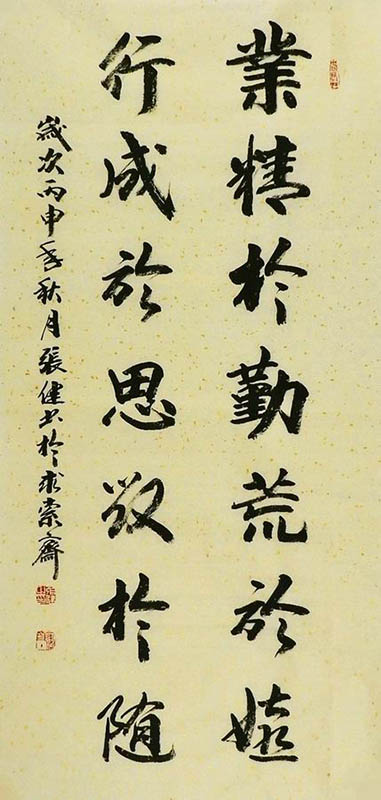 業精於勤荒於嬉
行成於思毀於隨
歲次丙申季秋月張健书於求索齋